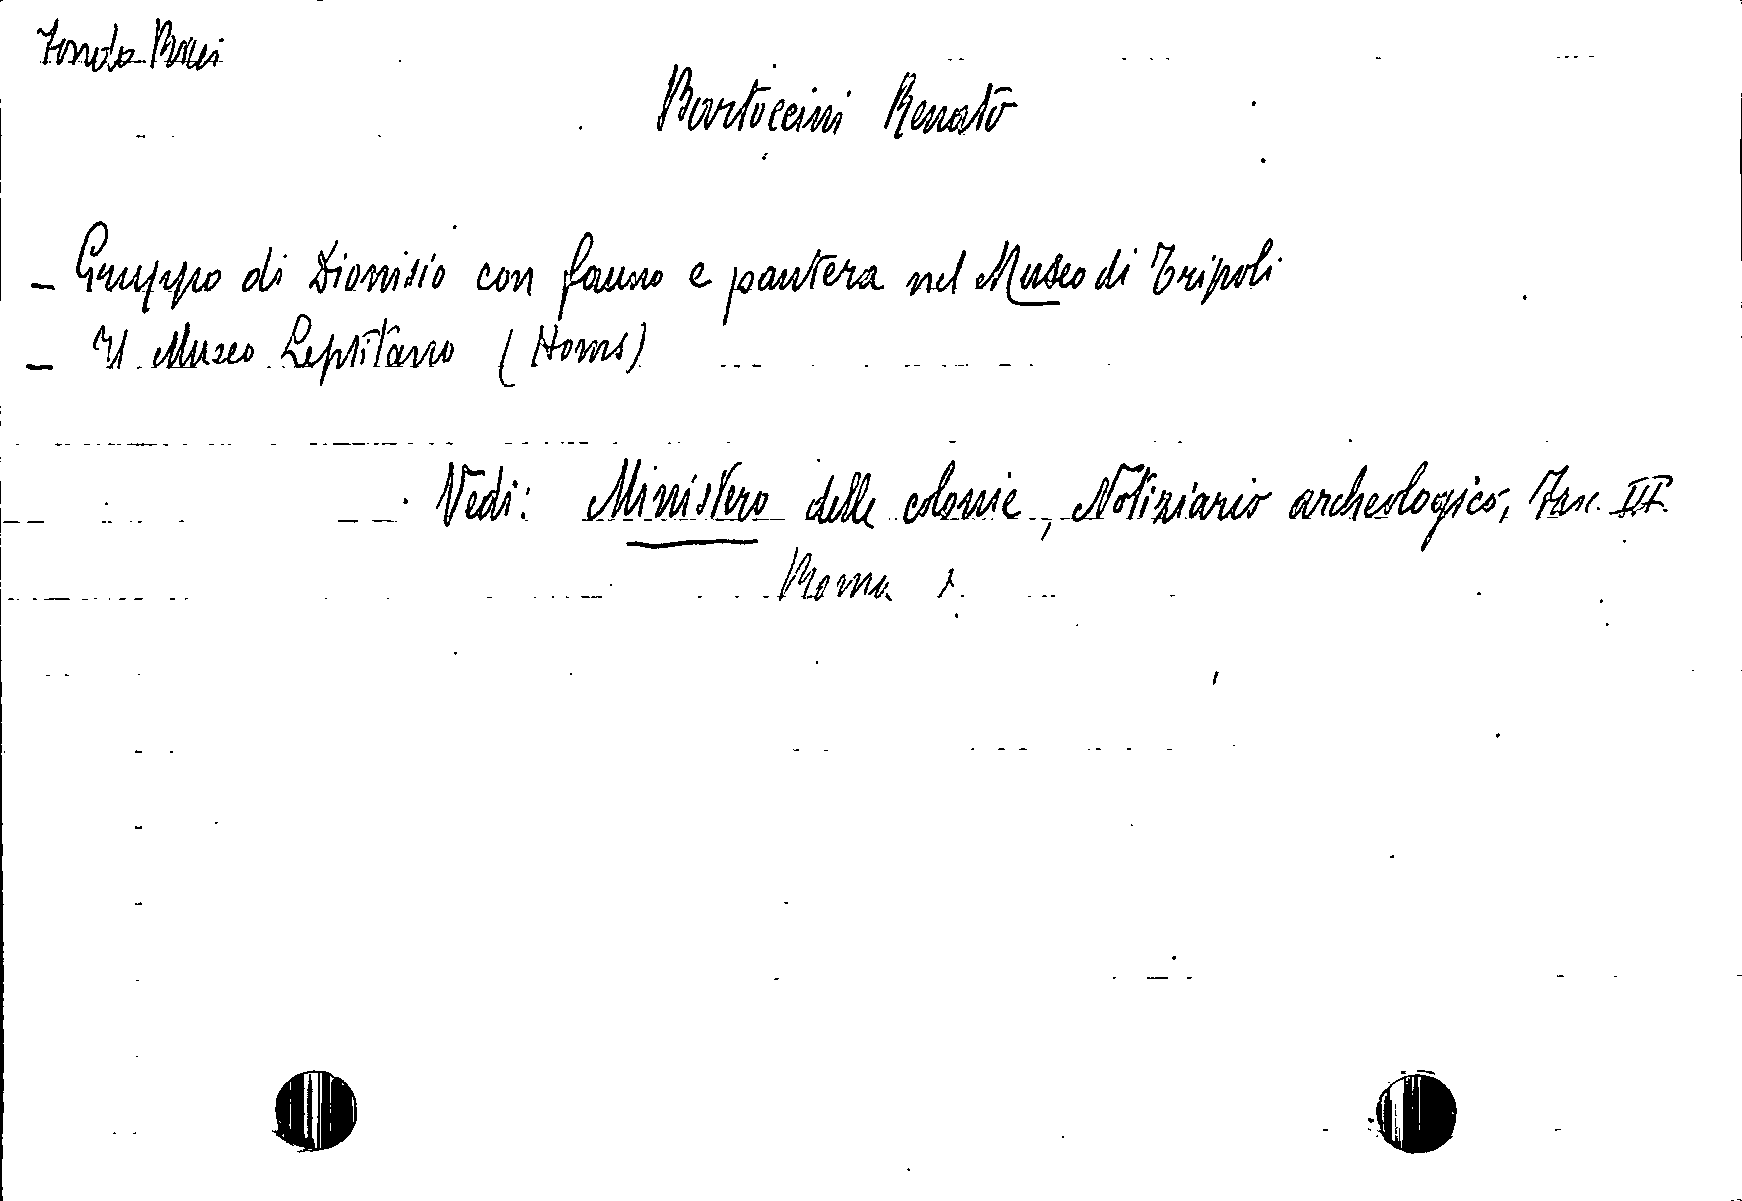 Fondo
Bartoccini Renato
- Gruppo di Dionisio con fauno e pantera nel Museo di Tripoli
- Il Museo Leptitano (Homs)
Vedi: Ministero delle colonie, Notiziario archeologico, Fasc. III
Roma